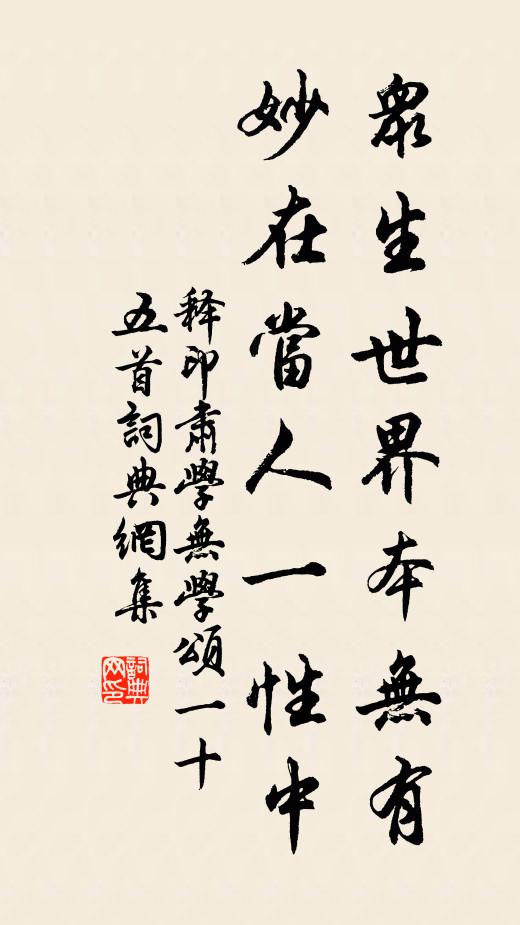 眾生世界本無有
妙在當人一性中
释印肅學無學頌一十
五首詞典網集
詞典网印